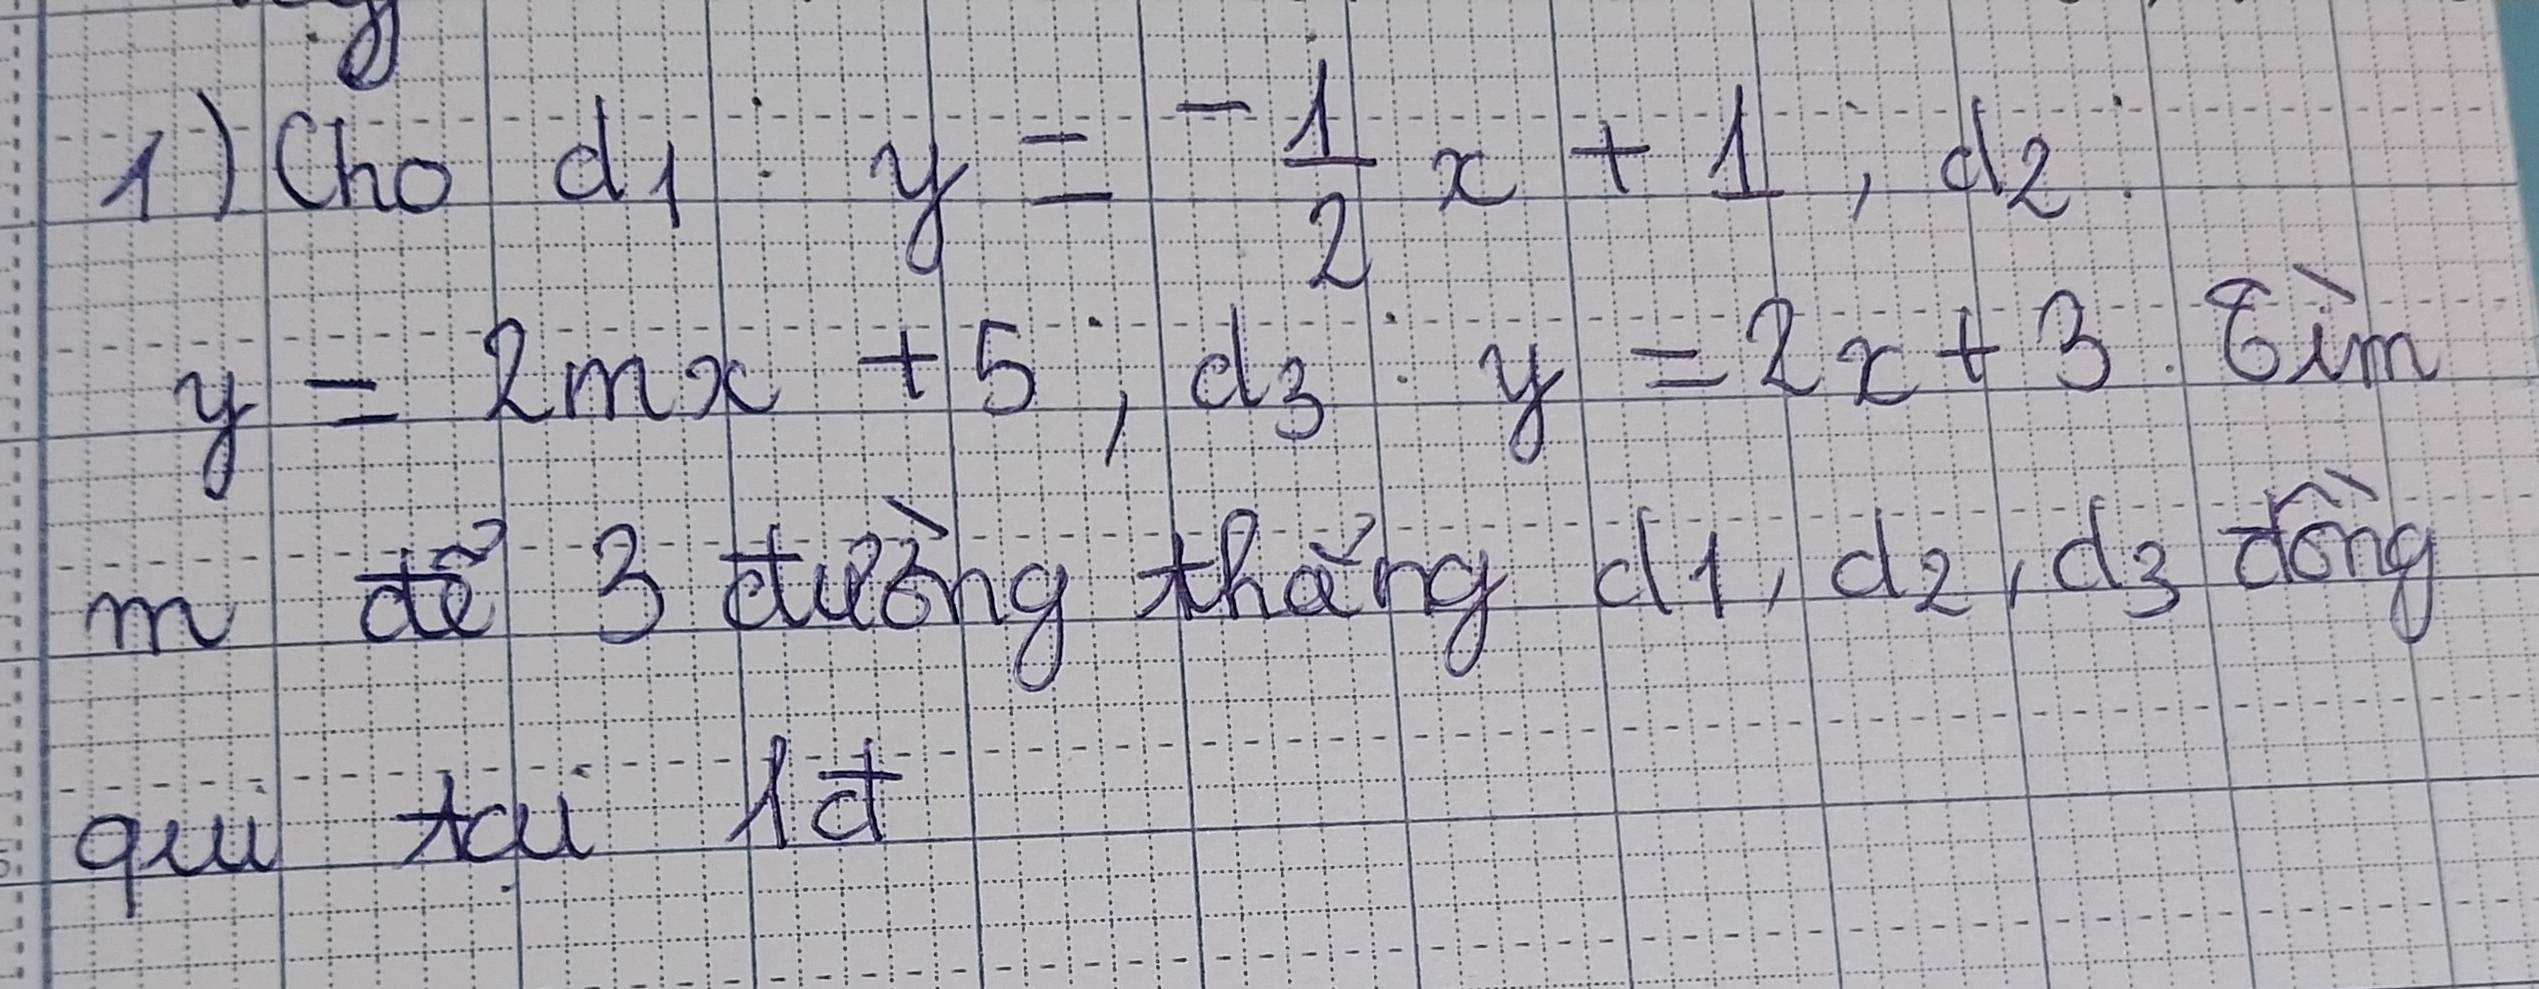 1) Cho d1: y = -1/2 x + 1, d2:
y = 2mx + 5, d3: y = 2x + 3. Tìm
m để 3 đường thẳng d1, d2, d3 đồng
qui tại 1đ